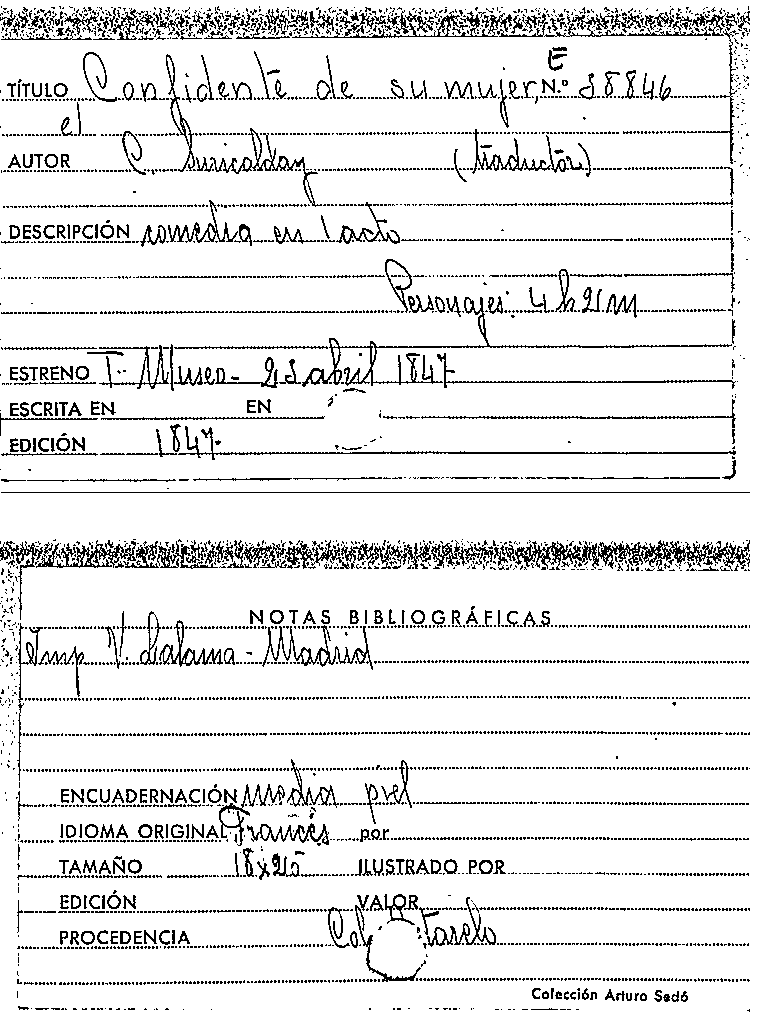 E
TÍTULO Confidente de su mujer, N.º 38846
el
AUTOR C. (traductor)
DESCRIPCIÓN comedia en 1 acto
Personajes: 4 h 2 m
ESTRENO T. Museo - abril 1847
ESCRITA EN EN
EDICIÓN 1847.
NOTAS BIBLIOGRÁFICAS
Imp V. Lalama - Madrid
ENCUADERNACIÓN media piel
IDIOMA ORIGINAL Francés por
TAMAÑO 18x25 ILUSTRADO POR
EDICIÓN VALOR
PROCEDENCIA Col tarelo
Colección Arturo Sedó